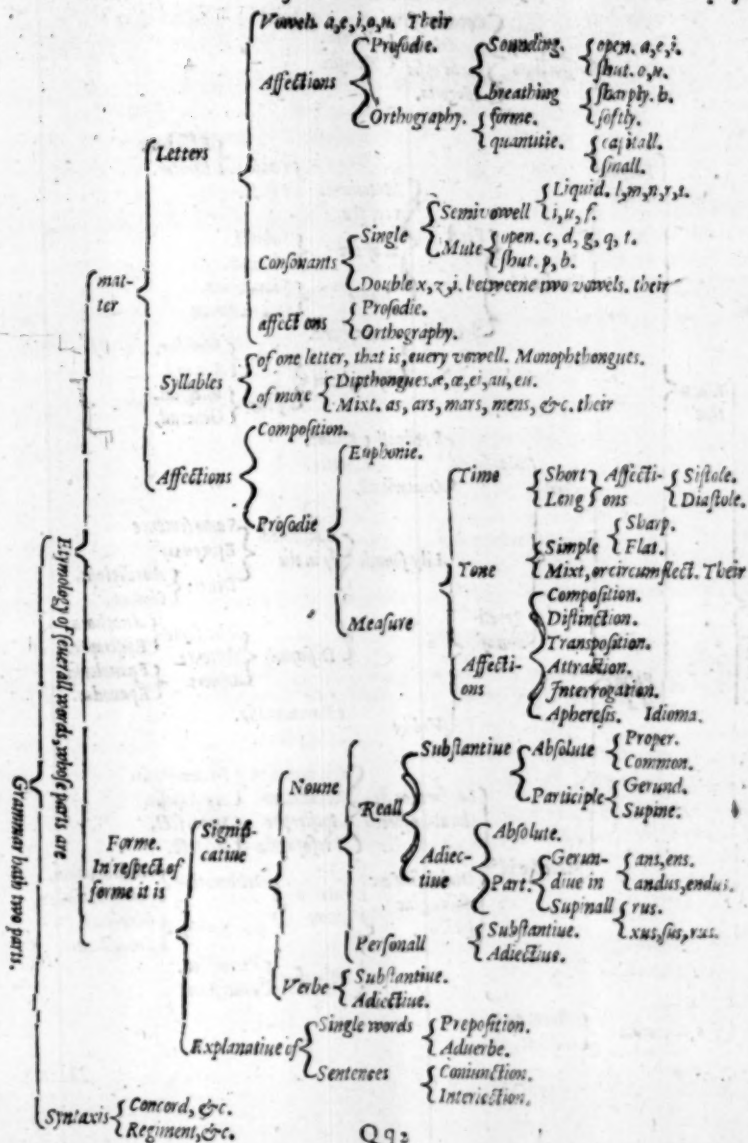 Vowels. a,e,i,o,u. Their
Affections
Prosodie.
Sounding.
open. a,e,i.
shut. o,u.
breathing
sharply. h.
softly.
Orthography.
forme.
quantitie.
capitall.
small.
Letters
Consonants
Single
Semivowell
Liquid. l,m,n,r,s.
i, u, f.
Mute
open. c, d, g, q, t.
shut. p, b.
Double x, z, i. betweene two vowels. their
affections
Prosodie.
Orthography.
mat-
ter
Syllables
of one letter, that is, euery vowell. Monophthongues.
of more
Dipthongues. æ, œ, ei, au, eu.
Mixt. as, ars, mars, mens, &c. their
Affections
Composition.
Prosodie
Euphonie.
Measure
Time
Short
Long
Affecti-
ons
Sistole.
Diastole.
Tone
Simple
Sharp.
Flat.
Mixt, or circumflect. Their
Affecti-
ons
Composition.
Distinction.
Transposition.
Attraction.
Interrogation.
Apheresis. Idioma.
Grammar hath two parts.
Etymology of seuerall words, whose parts are
Forme.
In respect of
forme it is
Signifi-
catiue
Noune
Reall
Substantiue
Absolute
Proper.
Common.
Participle
Gerund.
Supine.
Adiec-
tiue
Absolute.
Part.
Gerun-
diue in
ans, ens.
andus, endus.
Supinall
rus.
xus, sus, rus.
Personall
Substantiue.
Adiectiue.
Verbe
Substantiue.
Adiectiue.
Explanatiue of
Single words
Preposition.
Aduerbe.
Sentences
Coniunction.
Interiection.
Syntaxis
Concord, &c.
Regiment, &c.
Qq2